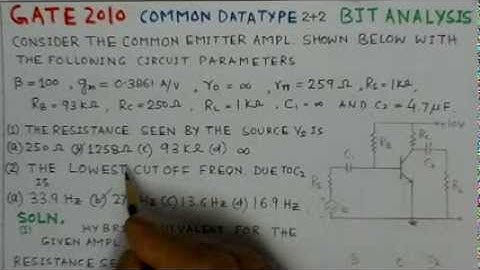 GATE 2010 COMMON DATATYPE 2+2 BJT ANALYSIS
CONSIDER THE COMMON EMITTER AMPL. SHOWN BELOW WITH
THE FOLLOWING CIRCUIT PARAMETERS
β=100, gm=0.3861 A/V, ro=∞, rπ=259Ω, Rs=1KΩ,
RB=93KΩ, RC=250Ω, RL=1KΩ, C1=∞ AND C2=4.7μF.
(1) THE RESISTANCE SEEN BY THE SOURCE VS IS
(a) 250Ω (b) 1258Ω (c) 93KΩ (d) ∞
(2) THE LOWEST CUT OFF FREQN. DUE TO C2
IS
(a) 33.9 Hz (b) 27 Hz (c) 13.6 Hz (d) 16.9 Hz
SOLN.
(1) EQUIVALENT FOR THE
GIVEN AMPL
RESISTANCE
+10V
RB
RC
C1
C2
RS
RL
VS
B
C